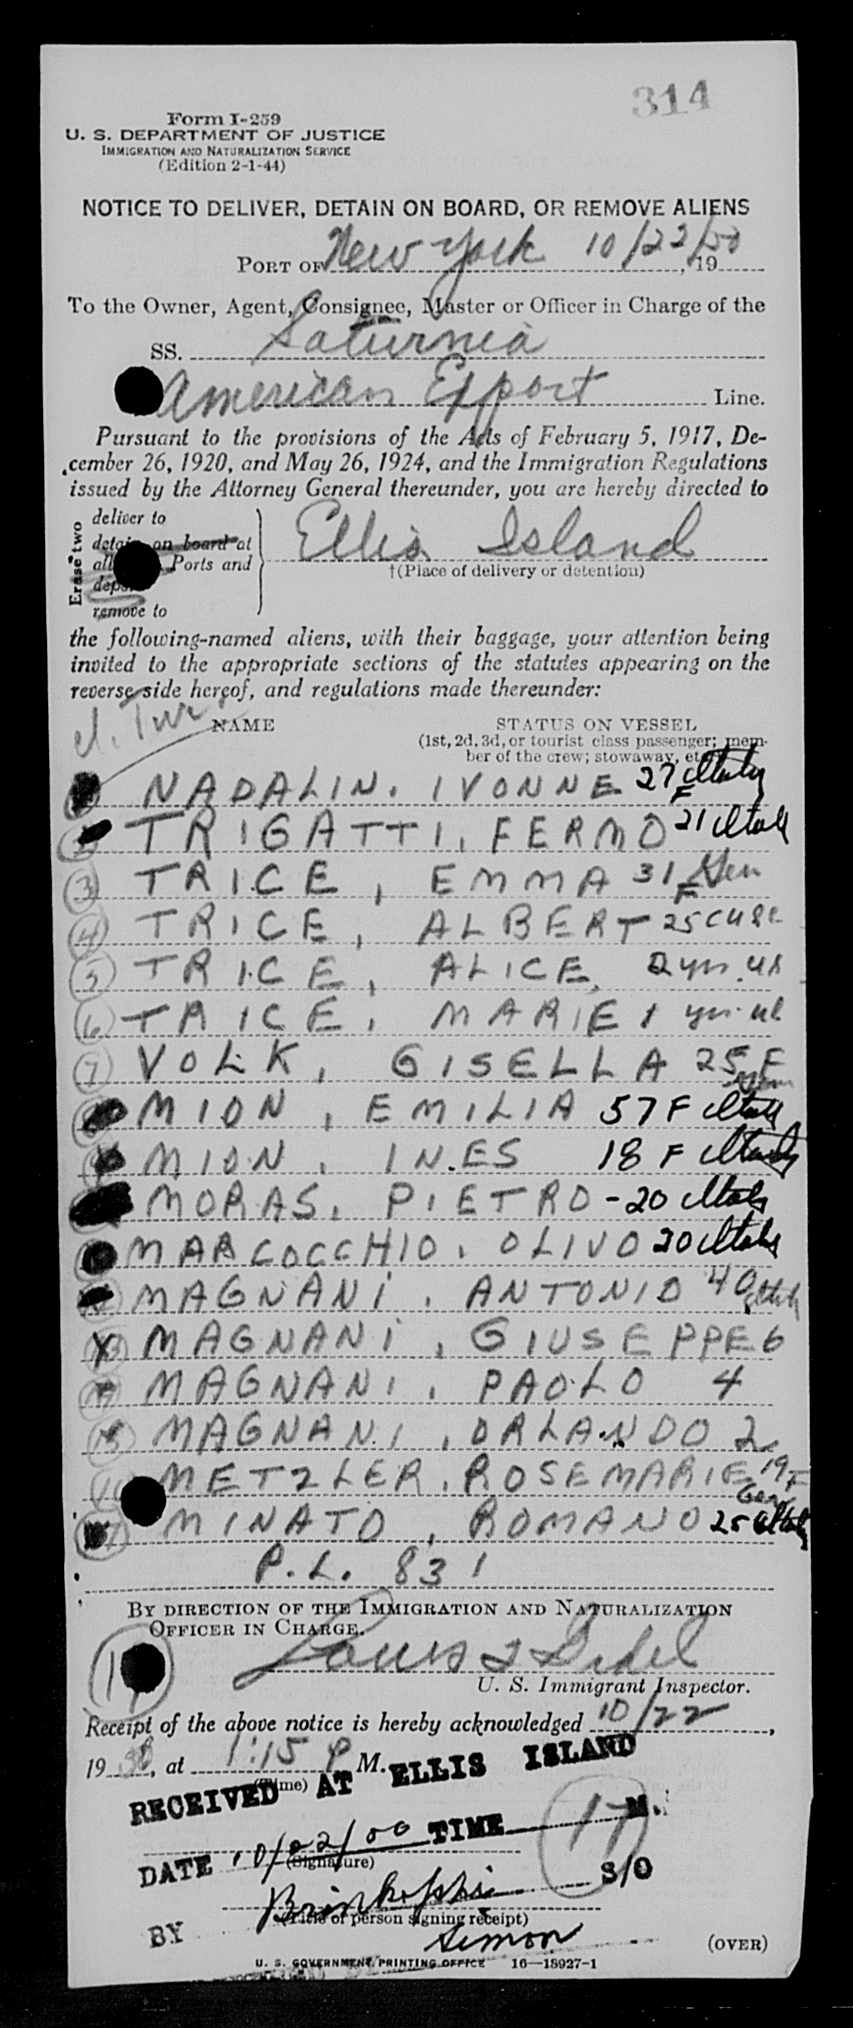 314
Form I-259
U. S. DEPARTMENT OF JUSTICE
IMMIGRATION AND NATURALIZATION SERVICE
(Edition 2-1-44)
NOTICE TO DELIVER, DETAIN ON BOARD, OR REMOVE ALIENS
PORT OF New York 10/22/50, 19
To the Owner, Agent, Consignee, Master or Officer in Charge of the
SS. Saturnia
American Export Line.
Pursuant to the provisions of the Acts of February 5, 1917, De-
cember 26, 1920, and May 26, 1924, and the Immigration Regulations
issued by the Attorney General thereunder, you are hereby directed to
Erase two
deliver to
detain on board at
all Ports and
remove to
Ellis Island
†(Place of delivery or detention)
the following-named aliens, with their baggage, your attention being
invited to the appropriate sections of the statutes appearing on the
reverse side hereof, and regulations made thereunder:
NAME STATUS ON VESSEL
(1st, 2d, 3d, or tourist class passenger; mem-
ber of the crew; stowaway, etc
NADALIN. IVONNE 27 F Italy
TRIGATTI, FERMO 21 Ital
3 TRICE, EMMA 31 F Gen
4 TRICE, ALBERT 25
5 TRICE, ALICE, 2 yrs. US
6 TRICE, MARIE 1 yr. US
7 VOLK, GISELLA 25 F
MION, EMILIA 57 F Ital
MION, INES 18 F Italy
MORAS, PIETRO - 20 Italy
MARCOCCHIO, OLIVO 20 Italy
MAGNANI, ANTONIO 40 Italy
MAGNANI, GIUSEPPE 6
MAGNANI, PAOLO 4
15 MAGNANI, ORLANDO 2
16 METZLER, ROSEMARIE 19 F
Gen
17 MINATO, ROMANO 25 Italy
P.L. 831
BY DIRECTION OF THE IMMIGRATION AND NATURALIZATION
OFFICER IN CHARGE.
17
Louis
U. S. Immigrant Inspector.
Receipt of the above notice is hereby acknowledged 10/22,
1950, at 1:15 P M.
(Time)
RECEIVED AT ELLIS ISLAND
DATE 10/22/50 TIME M.
17
(Signature)
S/O
BY
(Title of person signing receipt)
Simon
(OVER)
U. S. GOVERNMENT PRINTING OFFICE 16—18927-1